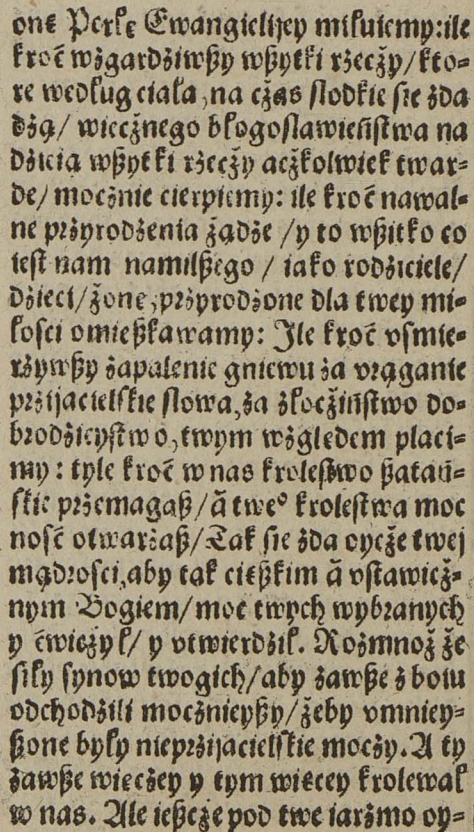 one Perłę Ewangielijey miłuiemy: ile
kroć wżgardźiwßy wßytki rżeczy/kto=
re według ciała, na czas słodkie sie żda
dżą/ wiecżnego błogosławieństwa na
dżieią wßytki rżeczy aczkolwiek twar=
de/ mocżnie cierpiemy: ile kroć nawal=
ne prżyrodżenia żądże /y to wßitko co
iest nam namilßego / iako rodżiciele/
dżieci/żonę, prżyrodżone dla twey mi=
łosci omießkawamy: Ile kroć vsmie=
rżywßy żapalenie gniewu ża vrąganie
prżijacielskie słowa, ża żłoczińſtwo do=
brodżieyſtwo, twym wżględem płaci=
my: tyle kroć w nas kroleſtwo ßatań=
skie prżemagaß/ á tweº kroleſtwa moc
ność otwarzaß/ Tak sie żda oycże twej
mądrosci, aby tak cießkim á vſtawicż=
nym Bogiem/ moc twych wybranych
y ćwicżył/ y vtwierdżił. Rożmnoż że
siły synow twogich/aby żawße ż boiu
odchodżili mocżnieyßy/żeby vmniey=
ßone były nieprżijacielskie mocży. A ty
żawße wiecżey y tym wiecey krolewał
w nas. Ale ießcże pod twe iarżmo oy=